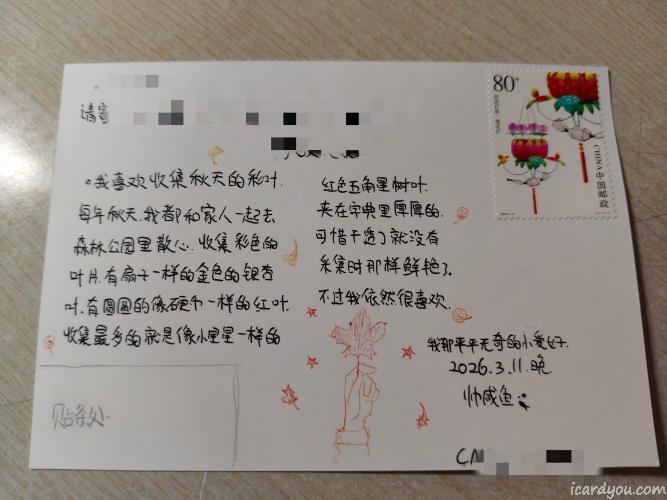 请寄
80分
民间灯彩·莲花灯
CHINA 中国邮政
我喜欢收集秋天的彩叶.
每年秋天.我都和家人一起去
森林公园里散心.收集彩色的
叶片.有扇子一样的金色的银杏
叶.有圆圆的像硬币一样的红叶.
收集最多的就是像小星星一样的
红色五角星树叶.
夹在字典里厚厚的.
可惜干透了就没有
采集时那样鲜艳了.
不过我依然很喜欢.
我那平平无奇的小爱好.
2026.3.11.晚
帅咸鱼
贴条处.
CN
icardyou.com